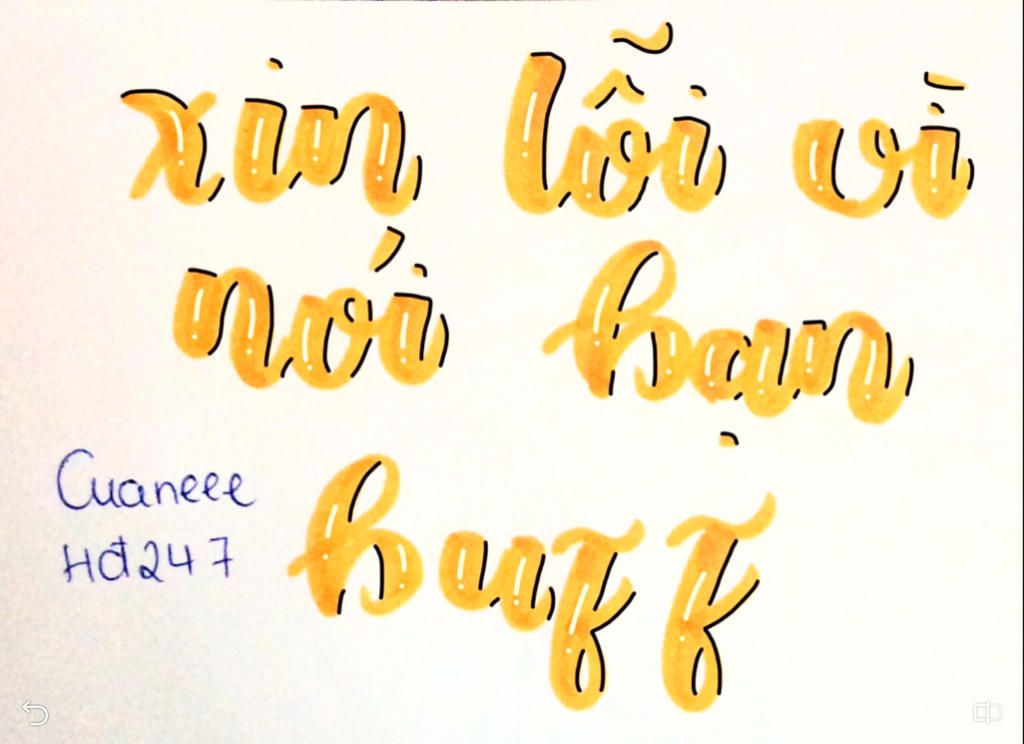 xin lỗi vì
nói bạn
buff
Cuaneee
Hđ247